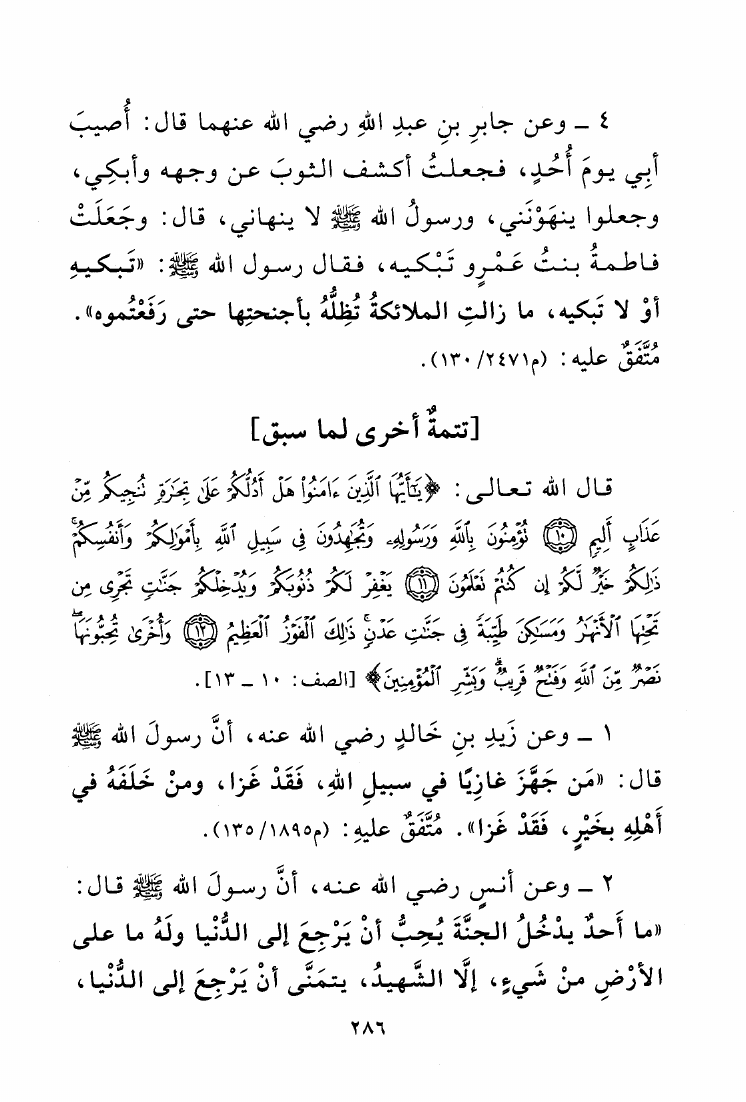 ٤ ــ وعن جابرِ بنِ عبدِ اللهِ رضي الله عنهما قال: أُصيبَ
أبِي يومَ أُحُدٍ، فجعلتُ أكشف الثوبَ عن وجهه وأبكِي،
وجعلوا ينهَوْنَني، ورسولُ الله ﷺ لا ينهاني، قال: وجَعَلَتْ
فاطمةُ بنتُ عَمْرٍو تَبْكيه، فقال رسول الله ﷺ: «تَبكيهِ
أوْ لا تَبكيه، ما زالتِ الملائكةُ تُظِلُّهُ بأجنحتِها حتى رَفَعْتُموه».
مُتَّفَقٌ عليه: (م٢٤٧١/ ١٣٠).
[تتمةٌ أخرى لما سبق]
قال الله تعالى: ﴿يَٰٓأَيُّهَا ٱلَّذِينَ ءَامَنُوا۟ هَلْ أَدُلُّكُمْ عَلَىٰ تِجَٰرَةٍ تُنجِيكُم مِّنْ
عَذَابٍ أَلِيمٍ ١٠ تُؤْمِنُونَ بِٱللَّهِ وَرَسُولِهِۦ وَتُجَٰهِدُونَ فِى سَبِيلِ ٱللَّهِ بِأَمْوَٰلِكُمْ وَأَنفُسِكُمْ ۚ
ذَٰلِكُمْ خَيْرٌ لَّكُمْ إِن كُنتُمْ تَعْلَمُونَ ١١ يَغْفِرْ لَكُمْ ذُنُوبَكُمْ وَيُدْخِلْكُمْ جَنَّٰتٍ تَجْرِى مِن
تَحْتِهَا ٱلْأَنْهَٰرُ وَمَسَٰكِنَ طَيِّبَةً فِى جَنَّٰتِ عَدْنٍ ۚ ذَٰلِكَ ٱلْفَوْزُ ٱلْعَظِيمُ ١٢ وَأُخْرَىٰ تُحِبُّونَهَا ۖ
نَصْرٌ مِّنَ ٱللَّهِ وَفَتْحٌ قَرِيبٌ ۗ وَبَشِّرِ ٱلْمُؤْمِنِينَ﴾ [الصف: ١٠ ــ ١٣].
١ ــ وعن زَيدِ بنِ خَالدٍ رضي الله عنه، أنَّ رسولَ الله ﷺ
قال: «مَن جَهَّزَ غازِيًا في سبيلِ اللهِ، فَقَدْ غَزا، ومنْ خَلَفَهُ في
أهْلِهِ بخَيْرٍ، فَقَدْ غَزا». مُتَّفَقٌ عليهِ: (م١٨٩٥/ ١٣٥).
٢ ــ وعن أنسٍ رضي الله عنه، أنَّ رسولَ الله ﷺ قال:
«ما أَحدٌ يدْخُلُ الجنَّةَ يُحِبُّ أنْ يَرْجِعَ إلى الدُّنْيا ولَهُ ما على
الأرْضِ منْ شَيءٍ، إلَّا الشَّهيدُ، يتمَنَّى أنْ يَرْجِعَ إلى الدُّنْيا،
٢٨٦